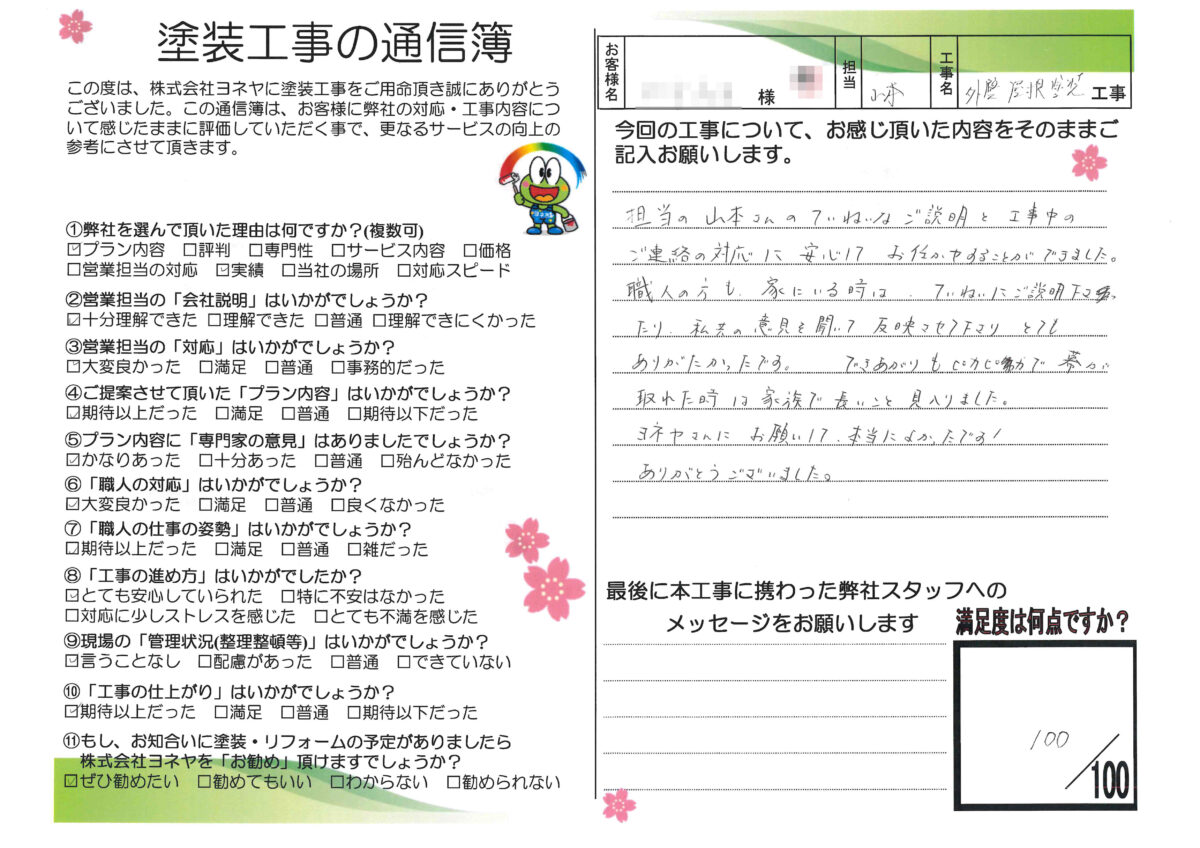 塗装工事の通信簿
この度は、株式会社ヨネヤに塗装工事をご用命頂き誠にありがとう
ございました。この通信簿は、お客様に弊社の対応・工事内容につ
いて感じたままに評価していただく事で、更なるサービスの向上の
参考にさせて頂きます。
①弊社を選んで頂いた理由は何ですか?(複数可)
☑プラン内容 □評判 □専門性 □サービス内容 □価格
□営業担当の対応 ☑実績 □当社の場所 □対応スピード
②営業担当の「会社説明」はいかがでしょうか?
☑十分理解できた □理解できた □普通 □理解できにくかった
③営業担当の「対応」はいかがでしょうか?
☑大変良かった □満足 □普通 □事務的だった
④ご提案させて頂いた「プラン内容」はいかがでしょうか?
☑期待以上だった □満足 □普通 □期待以下だった
⑤プラン内容に「専門家の意見」はありましたでしょうか?
☑かなりあった □十分あった □普通 □殆んどなかった
⑥「職人の対応」はいかがでしょうか?
☑大変良かった □満足 □普通 □良くなかった
⑦「職人の仕事の姿勢」はいかがでしょうか?
☑期待以上だった □満足 □普通 □雑だった
⑧「工事の進め方」はいかがでしたか?
☑とても安心していられた □特に不安はなかった
□対応に少しストレスを感じた □とても不満を感じた
⑨現場の「管理状況(整理整頓等)」はいかがでしょうか?
☑言うことなし □配慮があった □普通 □できていない
⑩「工事の仕上がり」はいかがでしょうか?
☑期待以上だった □満足 □普通 □期待以下だった
⑪もし、お知合いに塗装・リフォームの予定がありましたら
株式会社ヨネヤを「お勧め」頂けますでしょうか?
☑ぜひ勧めたい □勧めてもいい □わからない □勧められない
お客様名 様 担当 山本 工事名 外壁屋根塗装 工事
今回の工事について、お感じ頂いた内容をそのままご
記入お願いします。
担当の山本さんのていねいなご説明と工事中の
ご連絡の対応に安心して お任かせすることができました。
職人の方も、家にいる時は、ていねいにご説明下さっ
たり、私共の意見を聞いて反映させて下さり とても
ありがたかったです。 できあがりもピカピカで 幕が
取れた時は家族で長いこと見入りました。
ヨネヤさんにお願いして、本当によかったです!
ありがとうございました。
最後に本工事に携わった弊社スタッフへの
メッセージをお願いします
満足度は何点ですか?
100
/100